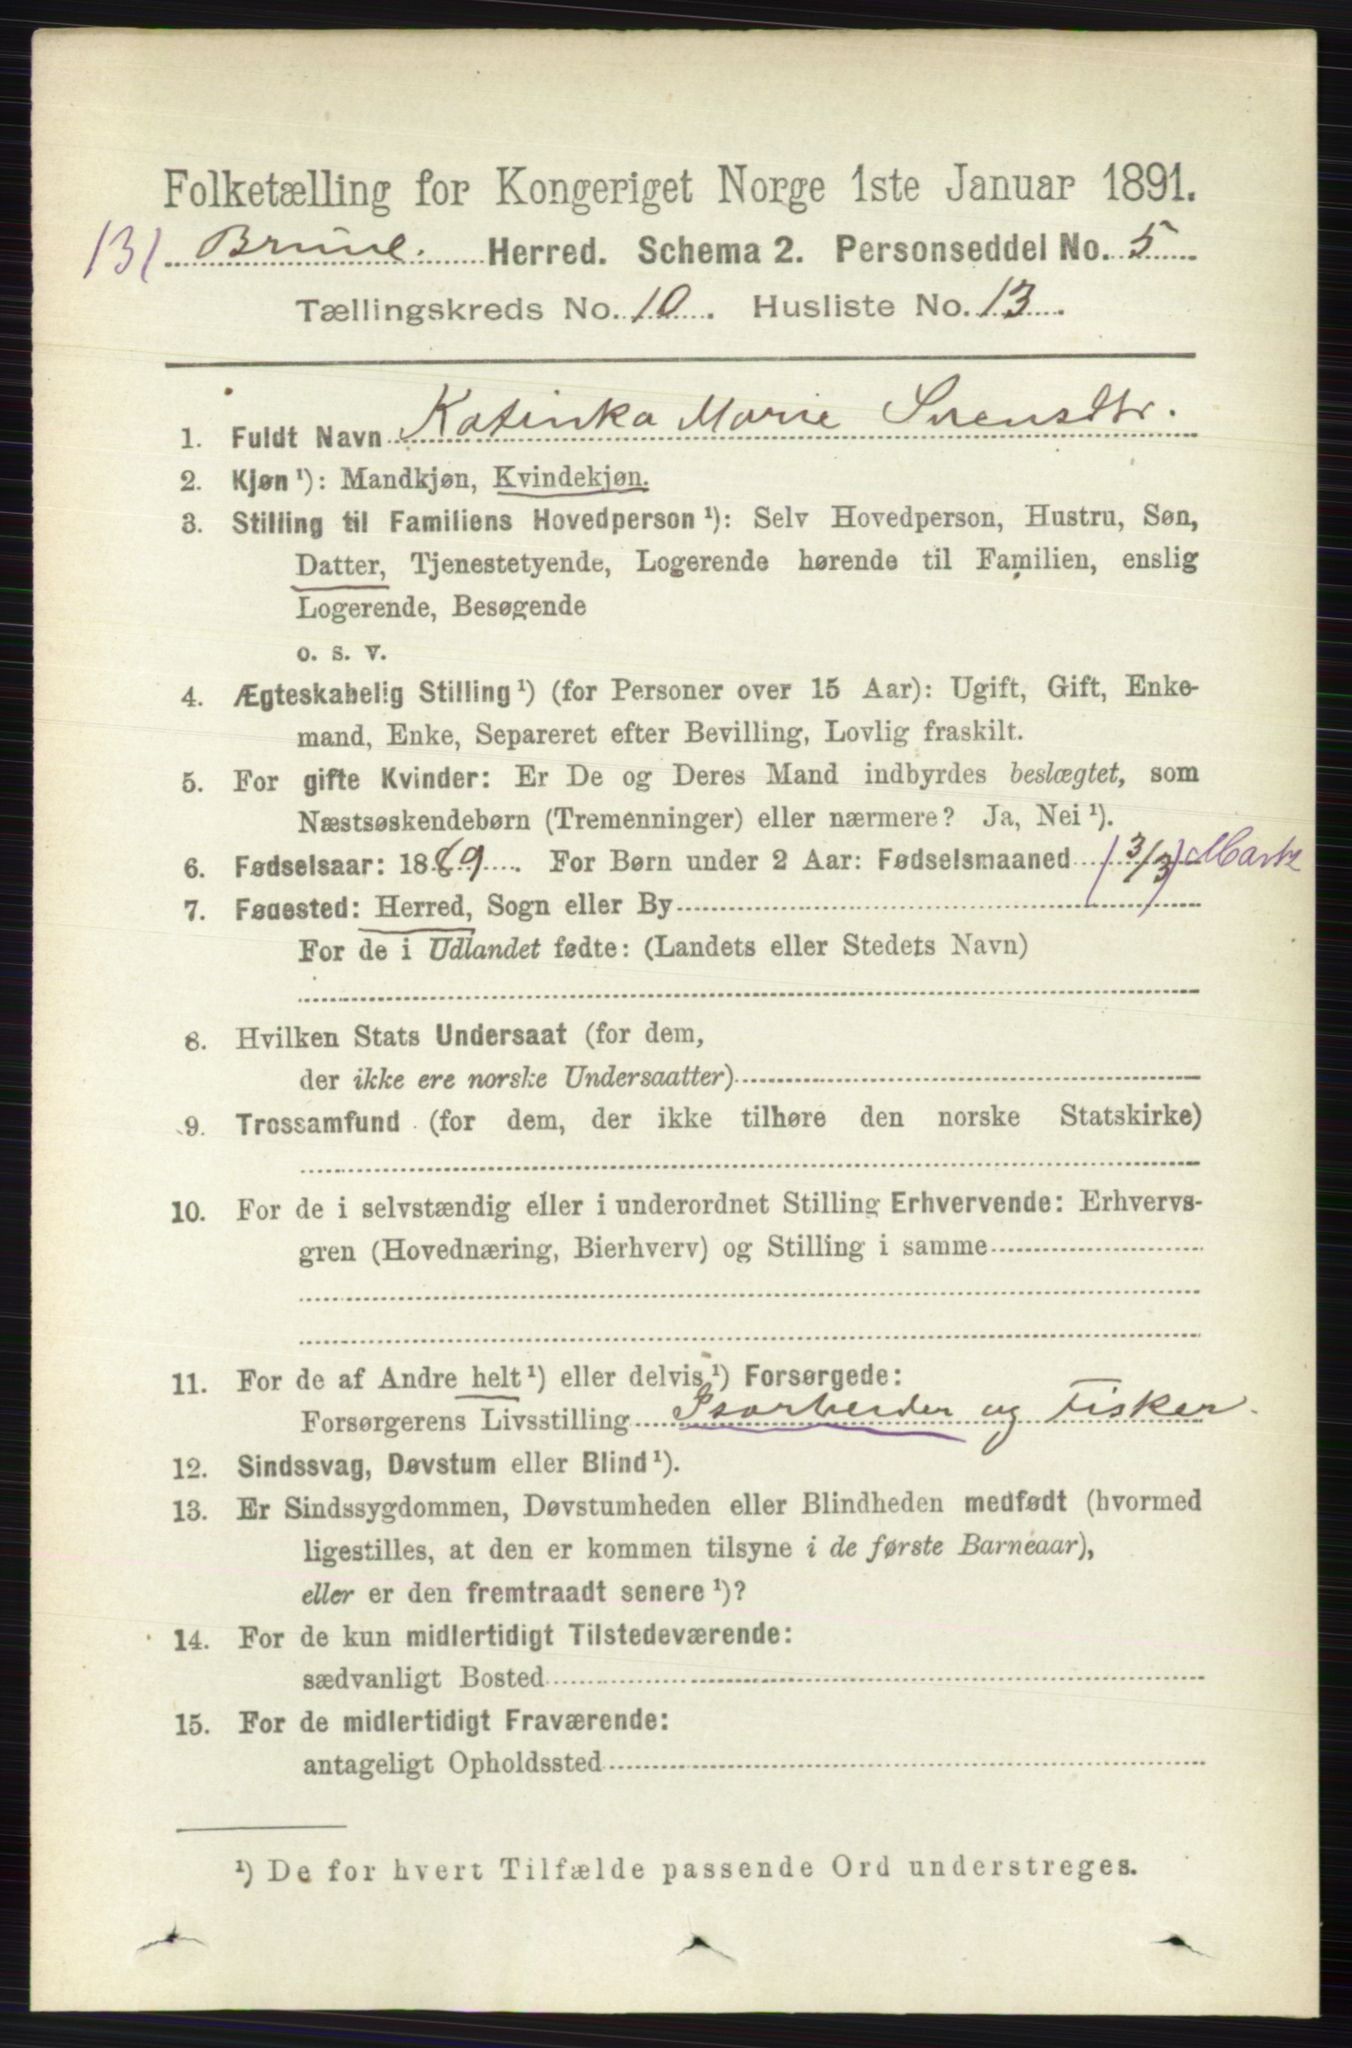 Folketælling for Kongeriget Norge 1ste Januar 1891.
131 Brunl. Herred. Schema 2. Personseddel No. 5
Tællingskreds No. 10. Husliste No. 13.
1. Fuldt Navn Katinka Marie Svensdtr.
2. Kjøn ¹): Mandkjøn, Kvindekjøn.
3. Stilling til Familiens Hovedperson ¹): Selv Hovedperson, Hustru, Søn,
Datter, Tjenestetyende, Logerende hørende til Familien, enslig
Logerende, Besøgende
o. s. v.
4. Ægteskabelig Stilling ¹) (for Personer over 15 Aar): Ugift, Gift, Enke-
mand, Enke, Separeret efter Bevilling, Lovlig fraskilt.
5. For gifte Kvinder: Er De og Deres Mand indbyrdes beslægtet, som
Næstsøskendebørn (Tremenninger) eller nærmere? Ja, Nei ¹).
6. Fødselsaar: 1889. For Børn under 2 Aar: Fødselsmaaned (3/3) Marts
7. Fødested: Herred, Sogn eller By
For de i Udlandet fødte: (Landets eller Stedets Navn)
8. Hvilken Stats Undersaat (for dem,
der ikke ere norske Undersaatter)
9. Trossamfund (for dem, der ikke tilhøre den norske Statskirke)
10. For de i selvstændig eller i underordnet Stilling Erhvervende: Erhvervs-
gren (Hovednæring, Bierhverv) og Stilling i samme
11. For de af Andre helt ¹) eller delvis ¹) Forsørgede:
Forsørgerens Livsstilling Isarbeider og Fisker.
12. Sindssvag, Døvstum eller Blind ¹).
13. Er Sindssygdommen, Døvstumheden eller Blindheden medfødt (hvormed
ligestilles, at den er kommen tilsyne i de første Barneaar),
eller er den fremtraadt senere ¹)?
14. For de kun midlertidigt Tilstedeværende:
sædvanligt Bosted
15. For de midlertidigt Fraværende:
antageligt Opholdssted
¹) De for hvert Tilfælde passende Ord understreges.